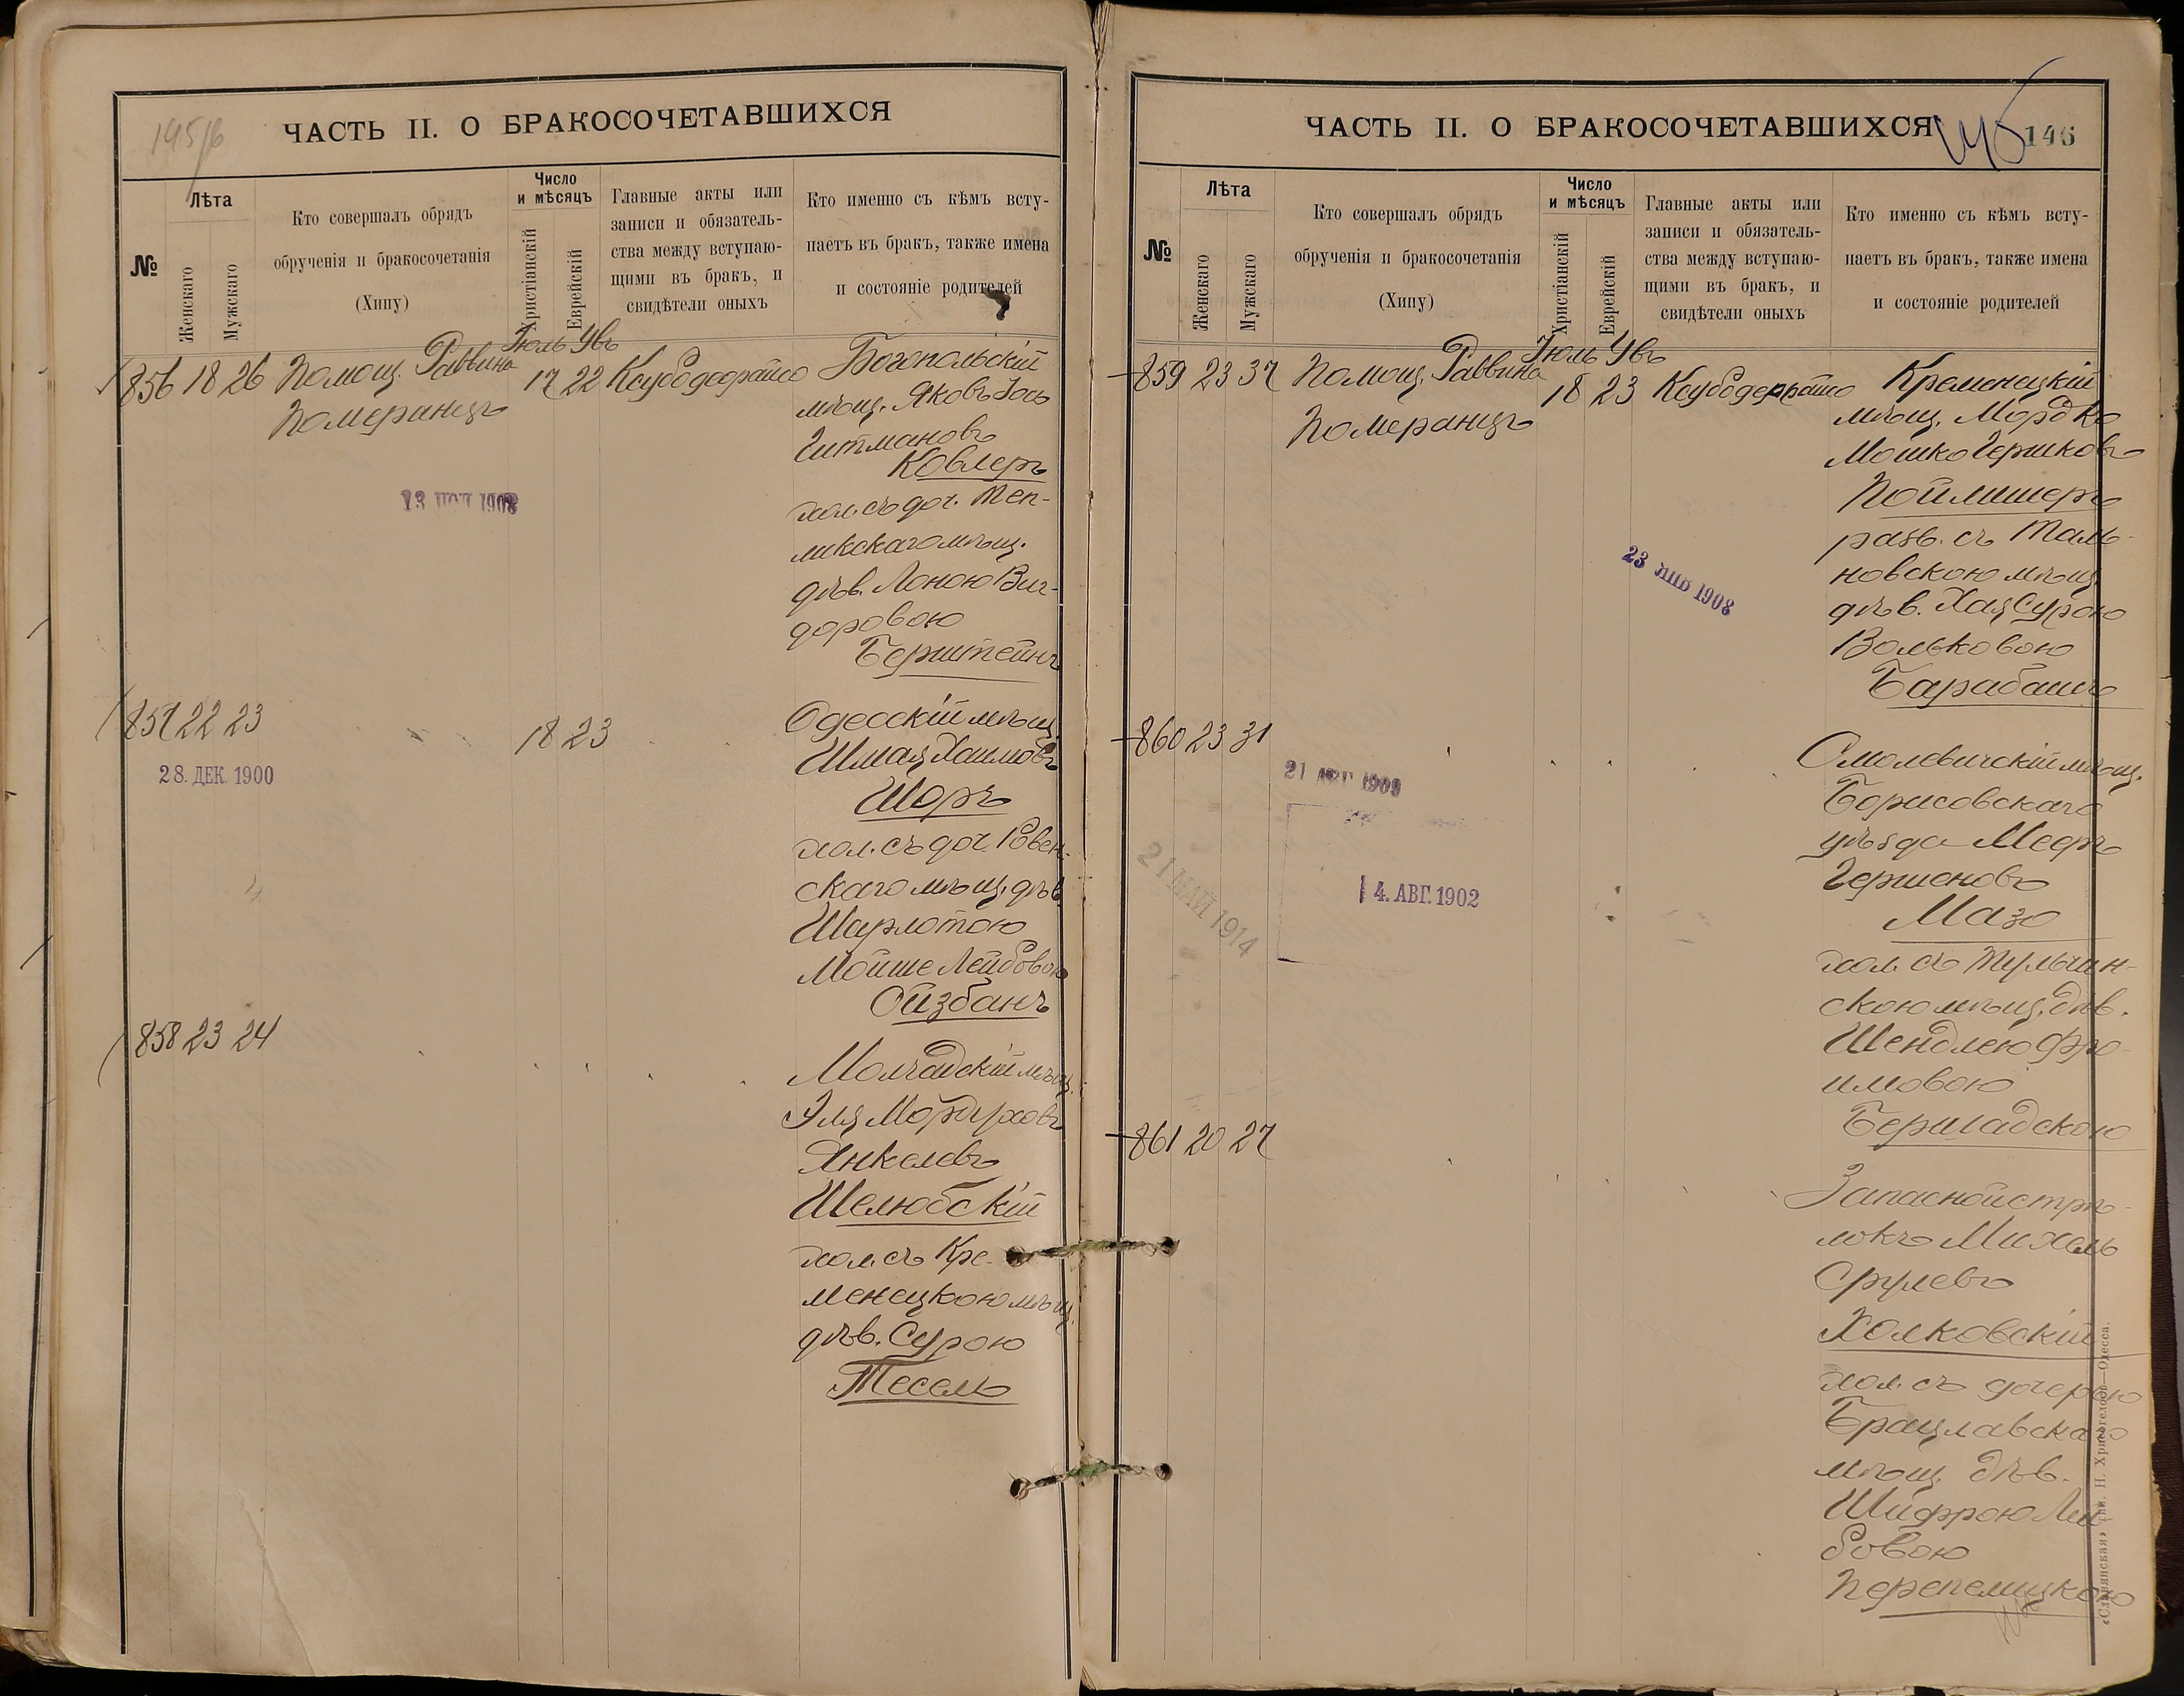 145/6
ЧАСТЬ II. О БРАКОСОЧЕТАВШИХСЯ
№
Лѣта
Женскаго
Мужскаго
Кто совершалъ обрядъ
обрученія и бракосочетанія
(Хипу)
Число
и мѣсяцъ
Христіанскій
Еврейскій
Главные акты или
записи и обязатель-
ства между вступаю-
щими въ бракъ, и
свидѣтели оныхъ
Кто именно съ кѣмъ всту-
паетъ въ бракъ, также имена
и состояніе родителей
Іюль Увъ
856 18 26 Помощ. Раввина 17 22
Померанцъ
Богопольскій
мѣщ. Яковъ Іось
Гитмановъ
Ковлеръ
хол. съ доч. Теп-
ликскаго мѣщ.
дѣв. Лоною Виг-
доровою
Берштейнъ
1908
857 22 23 18 23
28. ДЕК. 1900
Одесскій мѣщ.
Шмая Хаимовъ
Шоръ
хол. съ доч. Ровен-
скаго мѣщ. дѣв.
Шарлотою
Мойше Лейбовою
Ойзбанъ
858 23 24
Молчадскій мѣщ.
Эля Мордуховъ
Янкелевъ
Шелюбскій
хол. съ Кре-
менецкою мѣщ.
дѣв. Сурою
Тесель
ЧАСТЬ II. О БРАКОСОЧЕТАВШИХСЯ
146
146
№
Лѣта
Женскаго
Мужскаго
Кто совершалъ обрядъ
обрученія и бракосочетанія
(Хипу)
Число
и мѣсяцъ
Христіанскій
Еврейскій
Главные акты или
записи и обязатель-
ства между вступаю-
щими въ бракъ, и
свидѣтели оныхъ
Кто именно съ кѣмъ всту-
паетъ въ бракъ, также имена
и состояніе родителей
Іюль Увъ
859 23 37 Помощ. Раввина 18 23
Померанцъ
Кременецкій
мѣщ. Мордко
Мошко Гершковъ
Пойлишеръ
разв. съ Таль-
новскою мѣщ.
дѣв. Хая Сурою
Вольковою
Барабашъ
23 ЯНВ 1908
860 23 31
21 АВГ 1909
14. АВГ. 1902
21 МАЙ 1914
Смолевичскій мѣщ.
Борисовскаго
уѣзда Мееръ
Гершеновъ
Мазо
хол. съ Тульчин-
скою мѣщ. дѣв.
Шендлею Фро-
имовою
Бершадскою
861 20 27
Запасной стрѣ-
локъ Михель
Срулевъ
Холковскій
хол. съ дочерью
Брацлавскаго
мѣщ. дѣв.
Шифрою Лей
бовою
Перепелицкою
«Славянская» тип. Н. Хрисогелосъ—Одесса.